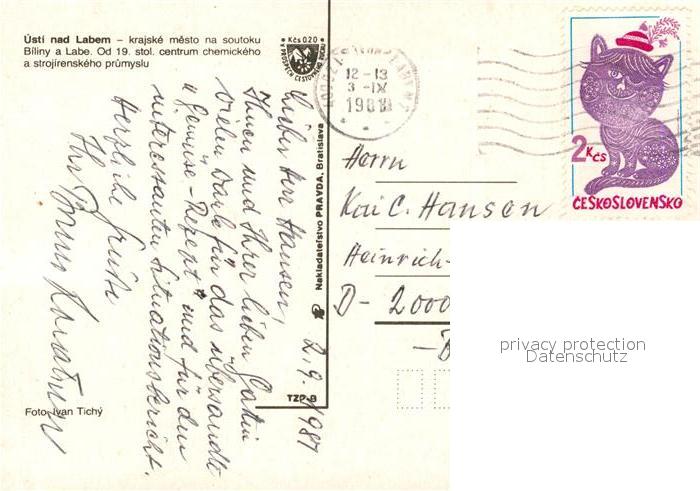 Ústí nad Labem – krajské město na soutoku
Bíliny a Labe. Od 19. stol. centrum chemického
a strojírenského průmyslu
Kčs 0,20
2.9.1981
Lieber Herr Hansen,
Ihnen und Ihrer lieben Gattin
vielen Dank für das übersandte
"Gemüse-Rezept" und für den
interessanten Situationsbericht.
Herzliche Grüße
Ihr
Foto: Ivan Tichý
Nakladateľstvo PRAVDA, Bratislava
TZP-B
12-13
3-IX
1981
2 Kčs
ČESKOSLOVENSKO
Herrn
Kai C. Hansen
Heinrich-
D- 2000
privacy protection
Datenschutz